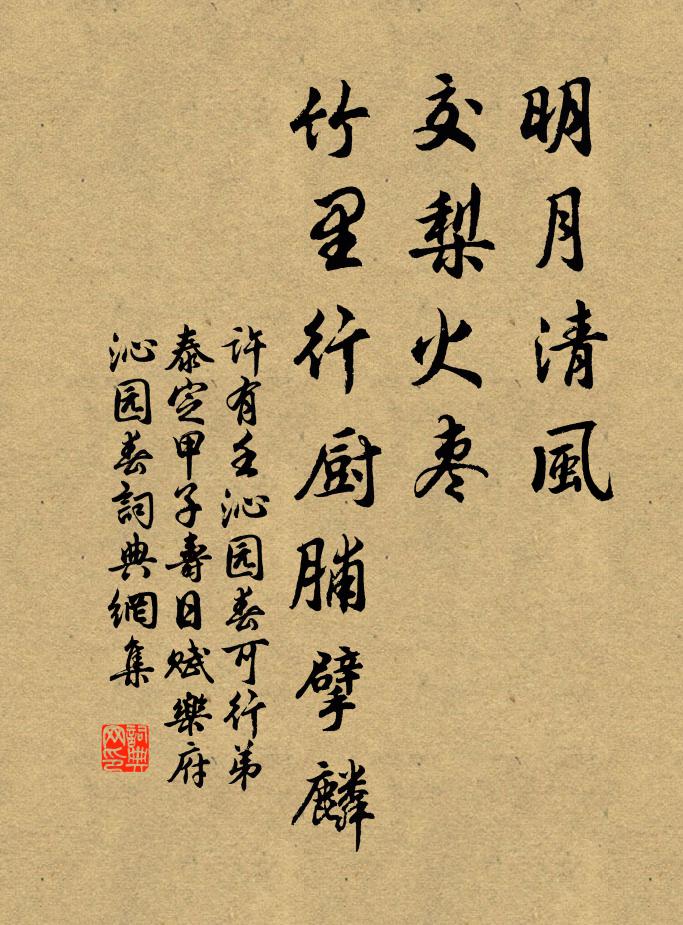 明月清風
交梨火枣
竹里行厨脯擘麟
许有壬沁园春可行弟
泰定甲子壽日赋樂府
沁园春詞典網集
詞典网印